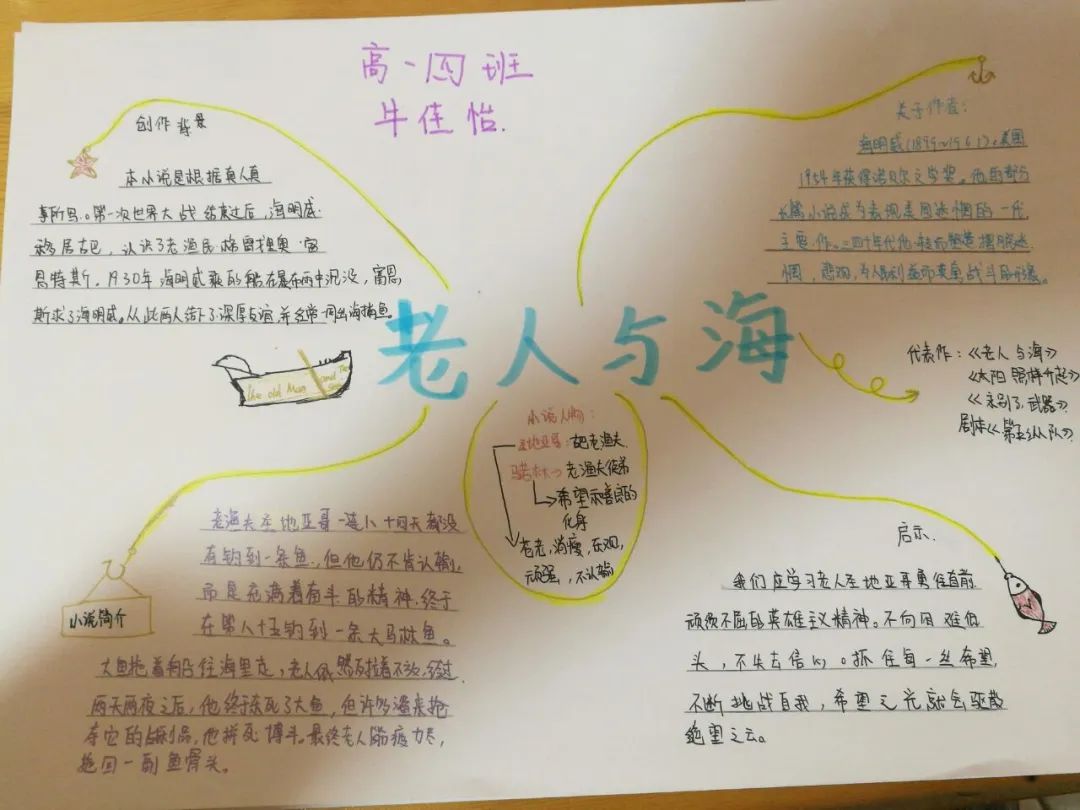 高一四班
牛佳怡.
创作背景
本小说是根据真人真
事所写。第一次世界大战结束过后,海明威
移居古巴,认识了老渔民格雷戈里奥·富
恩特斯。1930年海明威乘的船在暴雨中沉没,富恩
斯求了海明威。从此两人结下了深厚友谊,并经常一同出海捕鱼。
关于作者:
海明威(1899~1961).美国
1954年获得诺贝尔文学奖。他的部分
长篇小说成为表现美国迷惘的一代
主要作。三四十年代他转而塑造摆脱迷
惘,悲观,为人民利益而英勇战斗的形象。
老人与海
the old Man and The Sea
代表作:《老人与海》
《太阳照样升起》
《永别了武器》
剧本《第五纵队》
小说人物:
圣地亚哥:古巴老渔夫.
马诺林→老渔夫徒弟
希望和善良的
化身
老老,消瘦,乐观,
顽强,不认输
小说简介
老渔夫圣地亚哥一连八十四天都没
有钓到一条鱼.,但他仍不肯认输,
而是充满着奋斗的精神.终于
在第八十五钓到一条大马林鱼。
大鱼拖着船往海里走,老人依然死拉着不放,经过
两天两夜之后,他终于杀死了大鱼,但许多鲨来抢
夺它的战利品,他拼死博斗。最终老人筋疲力尽,
拖回一副鱼骨头。
启示.
我们应学习老人圣地亚哥勇往直前
顽强不屈的英雄主义精神。不向困难低
头,不失去信心。抓住每一丝希望,
不断挑战自我,希望之光就会驱散
绝望之云。